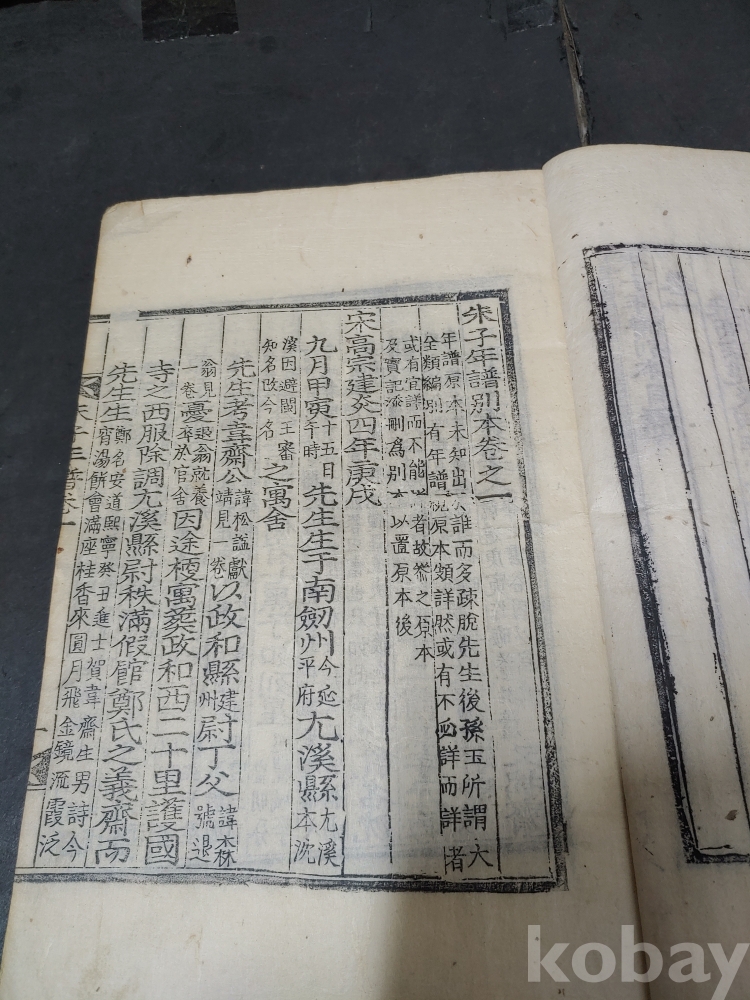 朱子年譜別本卷之一
年譜原本未知出於誰而多疎脫先生後孫玉所謂大
全類編別有年譜視原本類詳然或有不必詳而詳者
或有宜詳而不能詳者故茲之原本
及實記添刪爲別本以置原本後
宋高宗建炎四年庚戌
九月甲寅十五日午時先生生于南劒州今延平府尤溪縣尤溪本沈
溪因避閩王審知名改今名之寓舍
先生考韋齋公諱松謚獻靖見一卷以政和縣建州尉丁父諱森號退
翁見一卷憂退翁就養卒於官舍因途梗寓葬政和西二十里護國
寺之西服除調尤溪縣尉秩滿假館鄭氏之義齋而
先生生鄭名安道熙寧癸丑進士賀韋齋生男詩今
宵湯餠會滿座桂香來圓月飛金鏡流霞泛
朱子年譜卷一
kobay